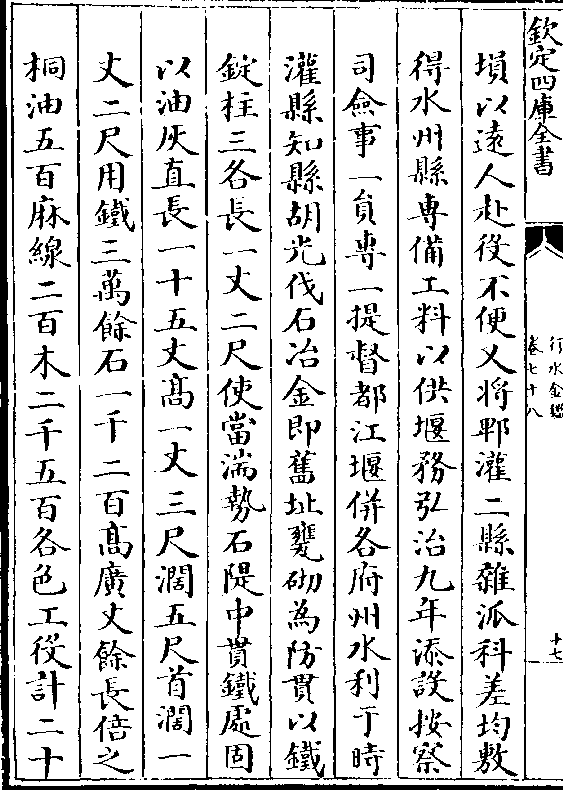 欽定四庫全書
行水金鑑
卷七十八
十七
埧以逺人赴役不便又將郫灌二縣雜派科差均敷
得水州縣専備工料以供堰務弘治九年添設按察
司僉事一員専一提督都江堰併各府州水利于時
灌縣知縣胡光伐石冶金即舊址甃砌為防貫以鐵
錠柱三各長一丈二尺使當湍勢石隄中貫鐵處固
以油灰直長一十五丈髙一丈三尺濶五尺首濶一
丈二尺用鐵三萬餘石一千二百髙廣丈餘長倍之
桐油五百麻線二百木二千五百各色工役計二十